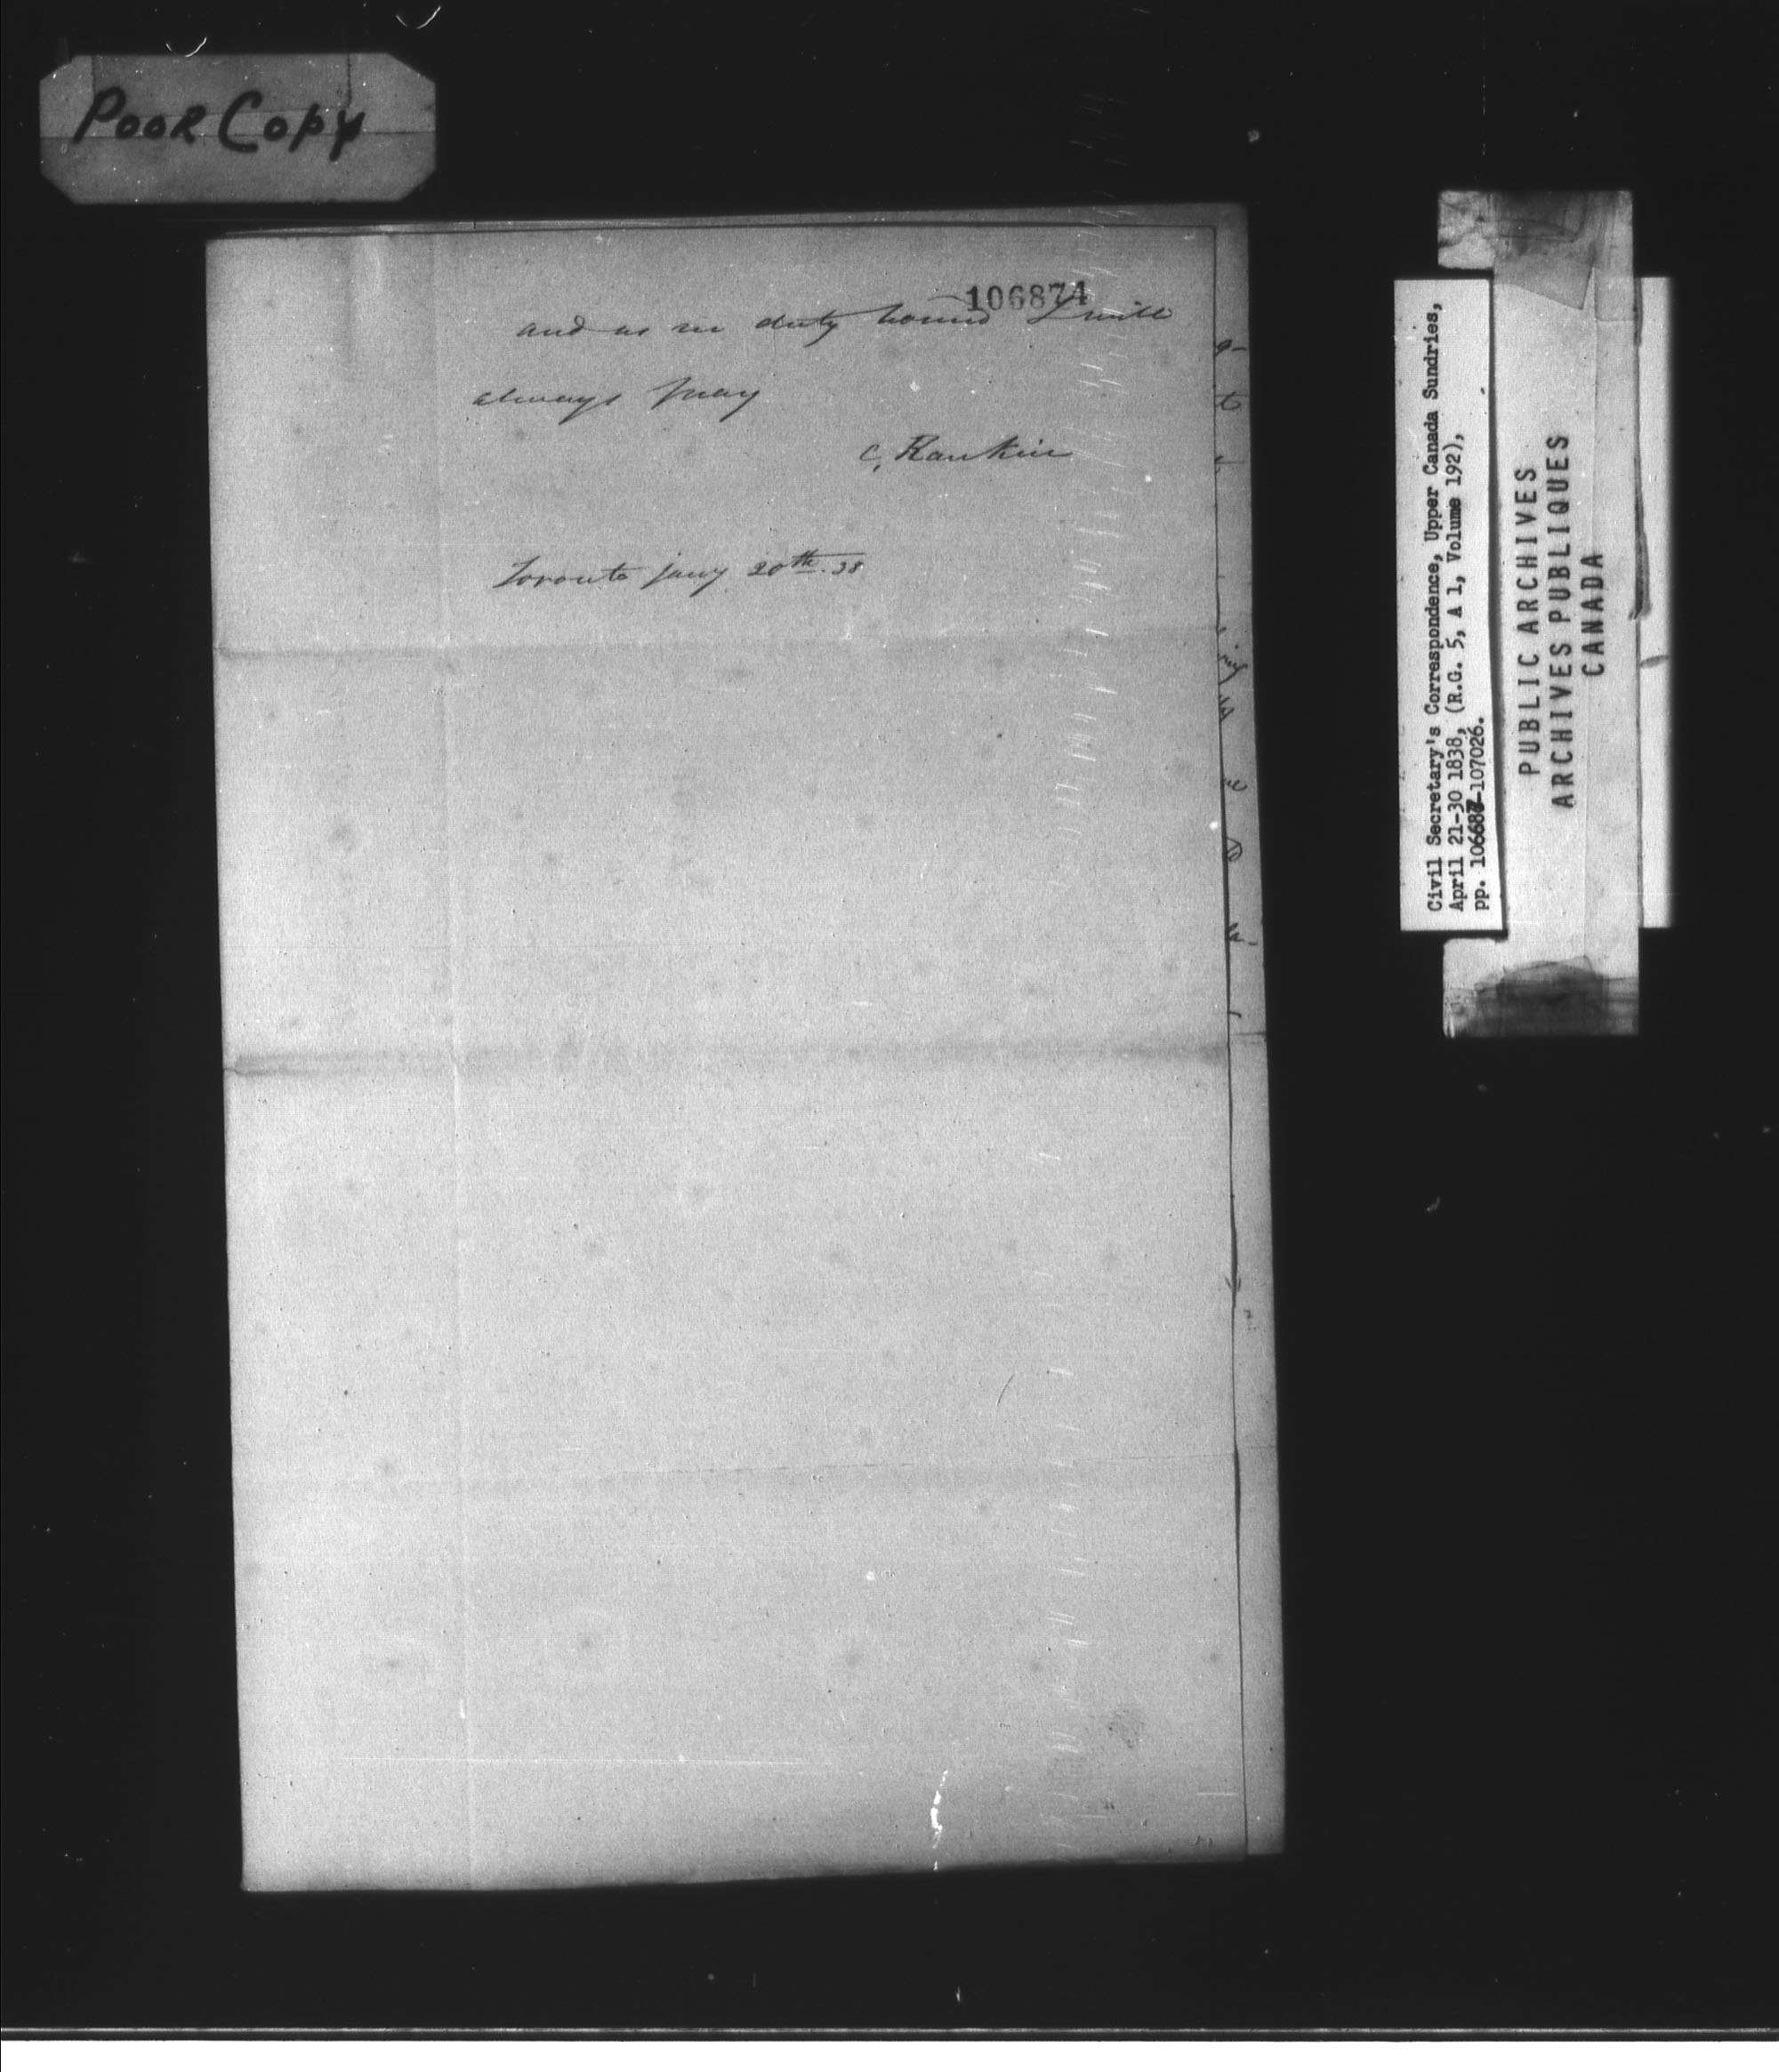 Poor Copy
106874
and as in duty bound I will
always pray
C, Rankin
Toronto Jany 20th. 38
Civil Secretary's Correspondence, Upper Canada Sundries,
April 21-30 1838, (R.G. 5, A 1, Volume 192),
pp. 106687-107026.
PUBLIC ARCHIVES
ARCHIVES PUBLIQUES
CANADA